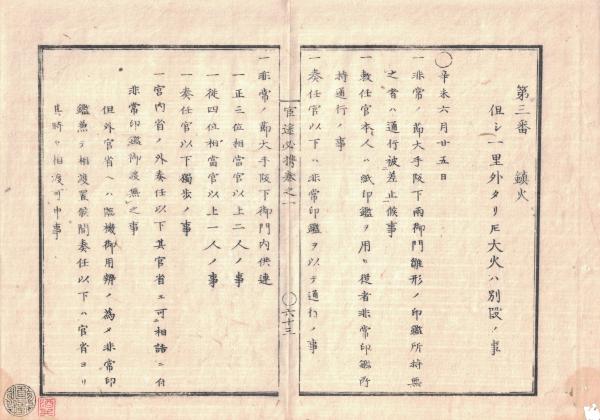 第三番　鎮火
但シ一里外タリ𪜈大火ハ別段ノ事
〇辛未六月廿五日
一非常ノ節大手阪下両御門雛形ノ印鑑所持無
之者ハ通行被差止候事
一敕任官本人ハ紙印鑑ヲ用ヒ從者非常印鑑所
持通行ノ事
一奏任官以下ハ非常印鑑ヲ以テ通行ノ事
官途必携巻之一
〇六十三
一非常ノ節大手阪下御門内供連
一正三位相當官以上二人ノ事
一從四位相當官以上一人ノ事
一奏任官以下獨歩ノ事
一宮内省ノ外奏任以下其官省ニ可相詰ニ付
非常印鑑御渡無之事
但外官省ヘハ臨機御用辨ノ為メ非常印
鑑無テ相渡置候間奏任以下ハ官省ヨリ
其時々相渡可申事